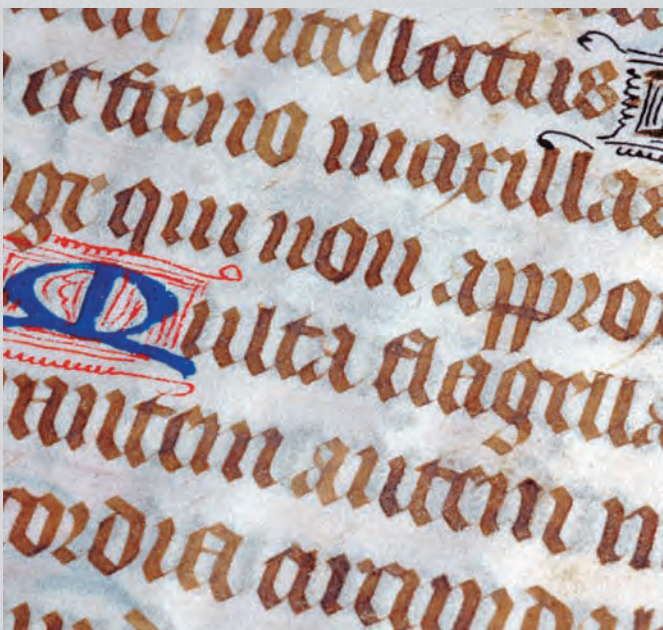 intellectus
et freno maxillas
ge qui non appro
Multa flagella
antem autem
cordia circumda